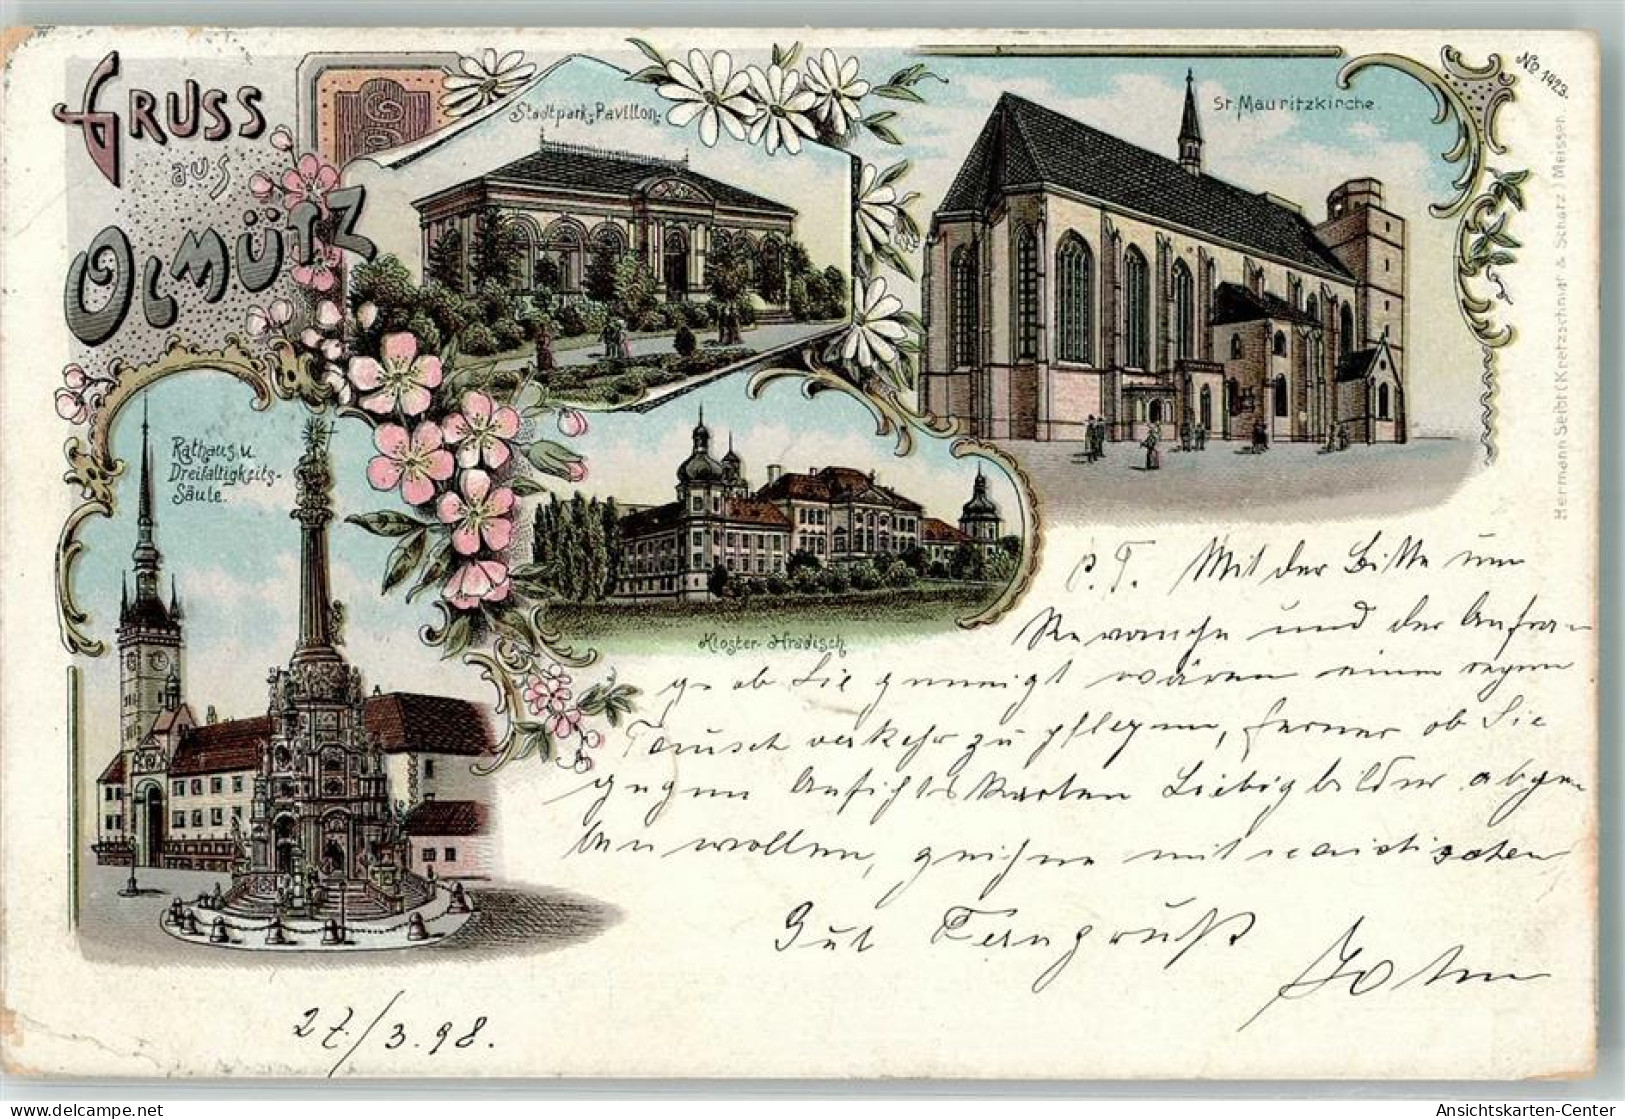 GRUSS
aus
OLMÜTZ
Stadtpark-Pavillon.
St. Mauritzkirche.
No 1423.
Hermann Seibt (Kretzschmar & Schatz) Meissen.
Rathaus u.
Dreifaltigkeits-
Säule.
Kloster-Hradisch
P. T. Mit der Bitte um
Revanche und der Anfra-
ge ob Sie geneigt wären einen regen
Tauschverkehr zu pflegen, ferner ob Sie
gegen Ansichtskarten Liebigbilder abge-
ben wollen, zeichne mit
Gut Ferngruß
John
27./3.98.
Ansichtskarten-Center